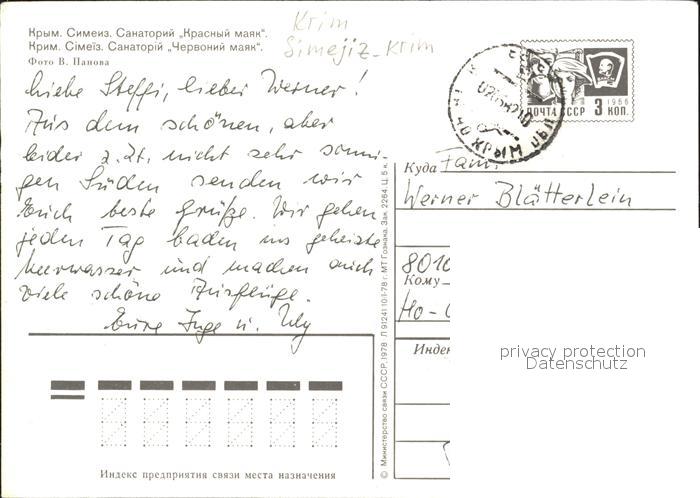 Крым. Симеиз. Санаторий „Красный маяк“.
Крим. Сімеїз. Санаторій „Червоний маяк“.
Фото В. Панова
Krim
Simejiz-Krim
Liebe Steffi, lieber Werner!
Aus dem schönen, aber
leider z. Zt. nicht sehr sonni-
gen Süden senden wir
Euch beste Grüße. Wir gehen
jeden Tag baden ins geheizte
Meerwasser und machen auch
viele schöne Ausflüge.
Eure Inge u. Uly
ПОЧТА СССР 3 КОП.
1966
КРЫМ
Куда Fam.
Werner Blätterlein
8010
Кому
Ho-
Индек
privacy protection
Datenschutz
Индекс предприятия связи места назначения
© Министерство связи СССР, 1978 г. МТ Гознака. Зак. 2264. Ц. 5 к.